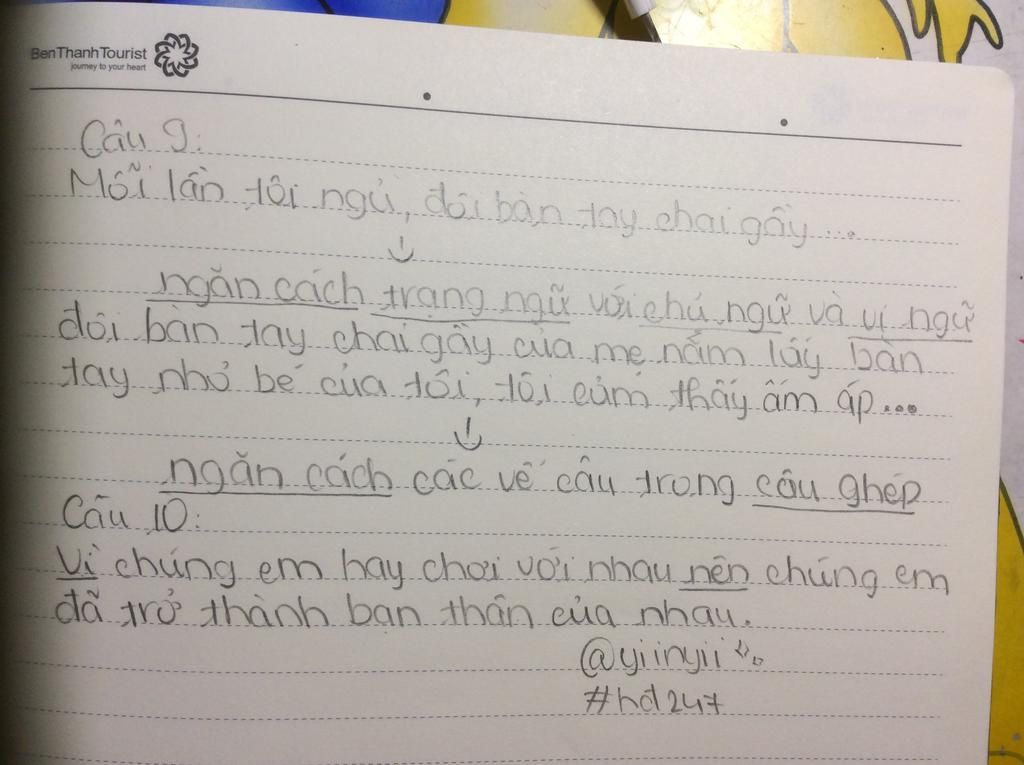 BenThanhTourist
journey to your heart
Câu 9:
Mỗi lần tôi ngủ, đôi bàn tay chai gầy...
ngăn cách trạng ngữ với chủ ngữ và vị ngữ
đôi bàn tay chai gầy của mẹ nắm lấy bàn
tay nhỏ bé của tôi, tôi cảm thấy ấm áp...
ngăn cách các vế câu trong câu ghép
Câu 10:
Vì chúng em hay chơi với nhau nên chúng em
đã trở thành bạn thân của nhau.
@yiinyii
#hd247